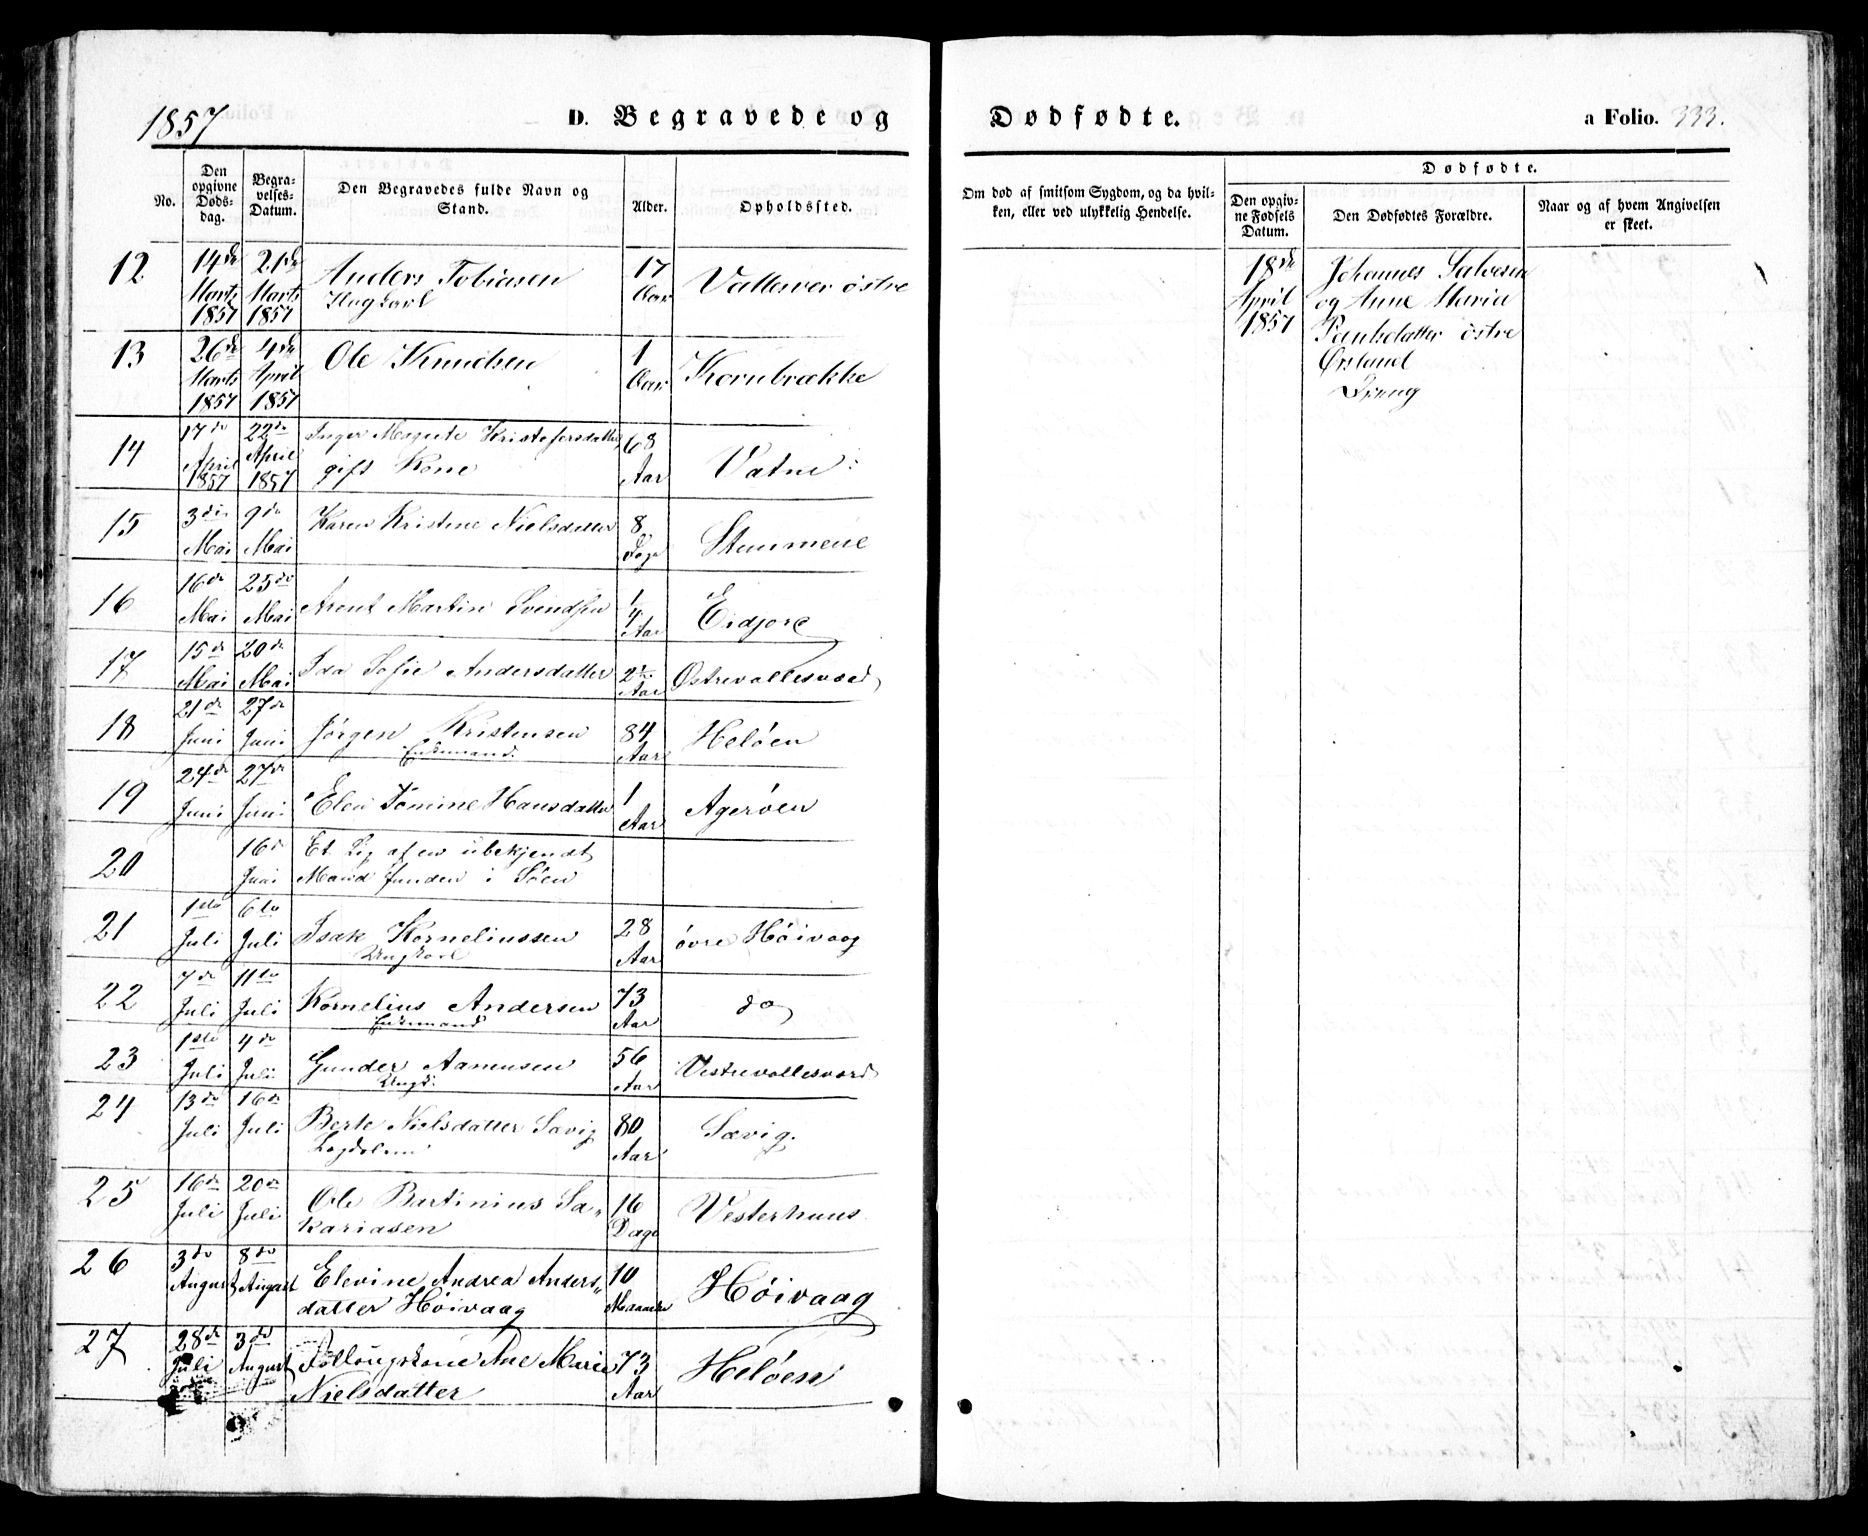 1857 D. Begravede og Dødfødte. a Folio. 333.
No.
Den opgivne Døds-dag.
Begra-velses-Datum.
Den Begravedes fulde Navn og Stand.
Alder.
Opholdssted.
Om død af smitsom Sygdom, og da hvil-
ken, eller ved ulykkelig Hendelse.
Dødfødte.
Den opgiv-
ne Fødsels
Datum.
Den Dødfødtes Forældre.
Naar og af hvem Angivelsen
er skeet.
12 14de Marts 1857 21de Marts 1857 Anders Tobiasen 17 Aar Vallesver østre
Ungkarl
13 26de Marts 1857 4de April 1857 Ole Knudsen 1 Aar Kornbrække
14 17de April 1857 22de April 1857 Inger Magrete Kristofersdatter 68 Aar Vatne
gift Kone
15 3die Mai 9de Mai Karen Kristine Nielsdatter 8 Dage Stummene
16 16de Mai 25de Mai Arent Martin Svendsen 1/4 Aar Eidjore
17 15de Mai 20de Mai Ida Sofie Andersdatter 2 Aar Østrevallesværd
18 21de Juni 27de Juni Jørgen Kristensen 84 Aar Heløen
Enkemand.
19 24de Juni 27de Juni Elen Tomine Hansdatter 1 Aar Agerøen
20 16de Juni Et Lig af en ubekjendt
Mand funden i Søen
21 1ste Juli 6te Juli Isak Korneliussen 28 Aar øvre Høivaag
Ungkarl
22 7de Juli 11te Juli Kornelius Andersen 73 Aar do
Enkemand
23 1ste Juli 4de Juli Gunder Aamusen 56 Aar Vestrevallesværd
Ungk.
24 13de Juli 16de Juli Berte Nielsdatter Sævig 80 Aar Sævig.
25 16de Juli 20de Juli Ole Bartinius Sa-
kariasen 16 Dage Vesterhuus
26 3de August 8de August Elevine Andrea Anders-
datter Høivaag 10 Maaneder Høivaag
27 28de Juli 3de August Føllougskone Ane Marie
Nielsdatter 73 Aar Heløen
18de April 1857
Johannes Salvesen
og Anne Maria
Paulsdatter østre
Ørsland
Dreng